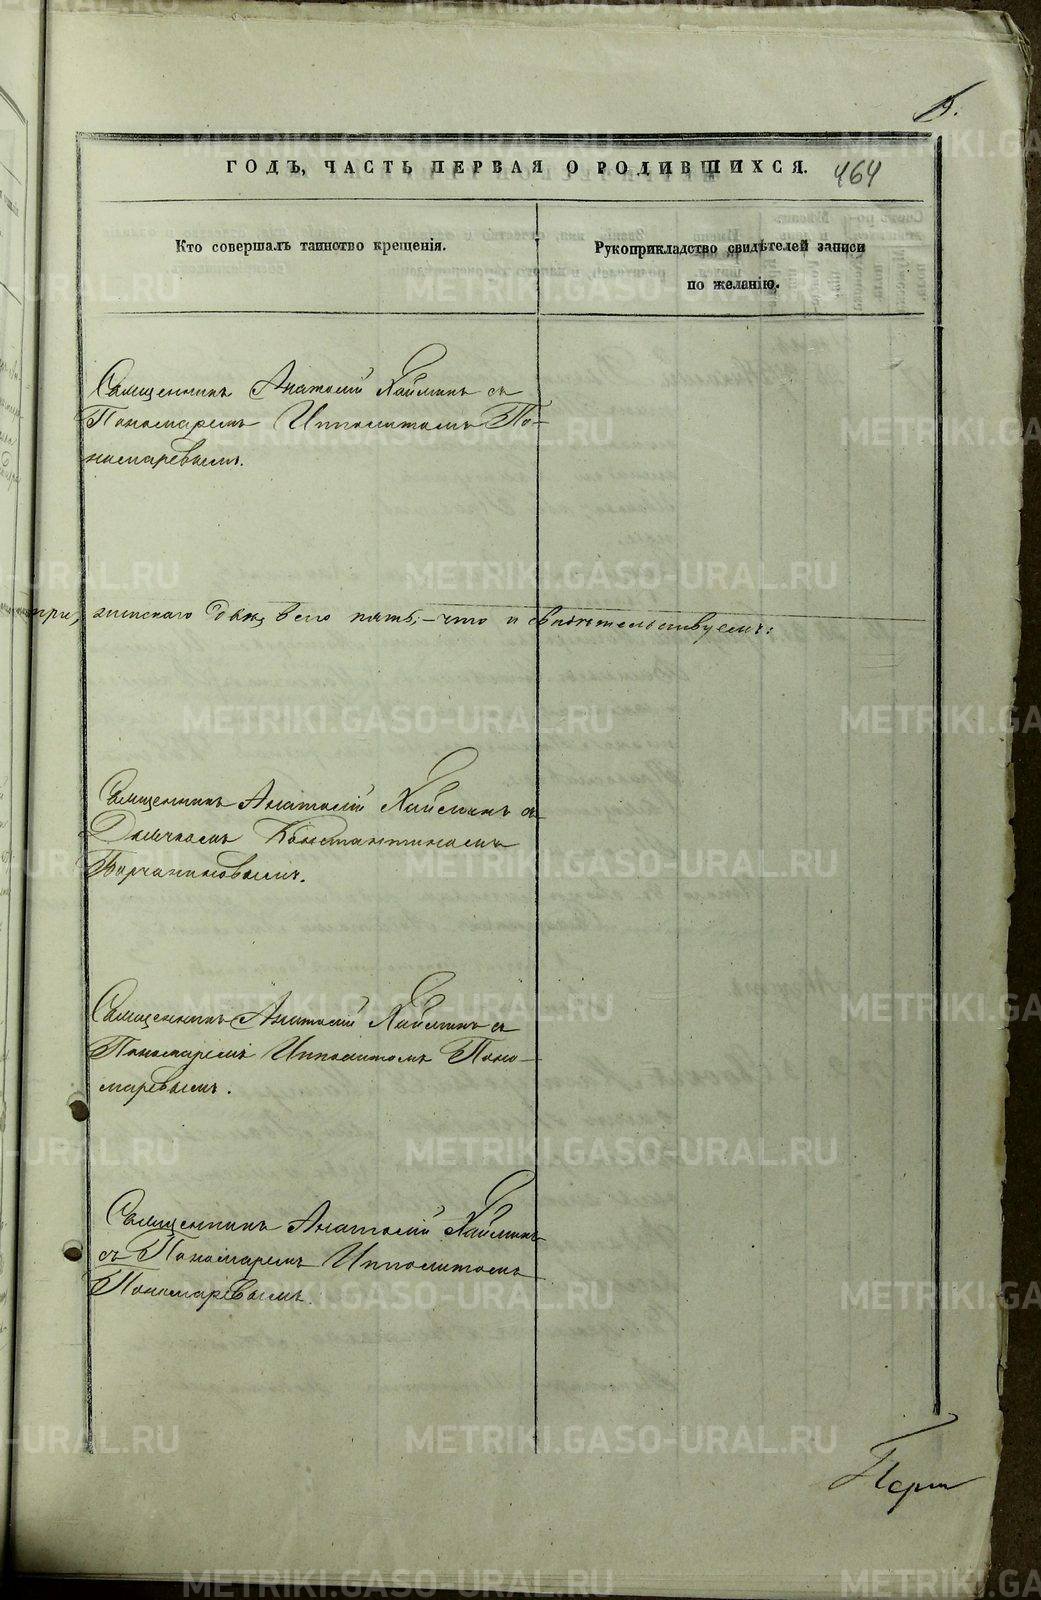 5.
ГОДЪ, ЧАСТЬ ПЕРВАЯ О РОДИВШИХСЯ. 464
Кто совершалъ таинство крещенія.
Рукоприкладство свидѣтелей записи
по желанію.
Священникъ Анатолій Хайминъ съ
Пономаремъ Ипполитомъ По-
номаревымъ.
три, женскаго два, всего пять; – что и свидѣтельствуемъ:
Священникъ Анатолій Хайминъ съ
Дьячкомъ Константиномъ
Борчаниновымъ.
Священникъ Анатолій Хайминъ съ
Пономаремъ Ипполитомъ Поно-
маревымъ.
Священникъ Анатолій Хайминъ
съ Пономаремъ Ипполитомъ
Пономаревымъ.
METRIKI.GASO-URAL.RU